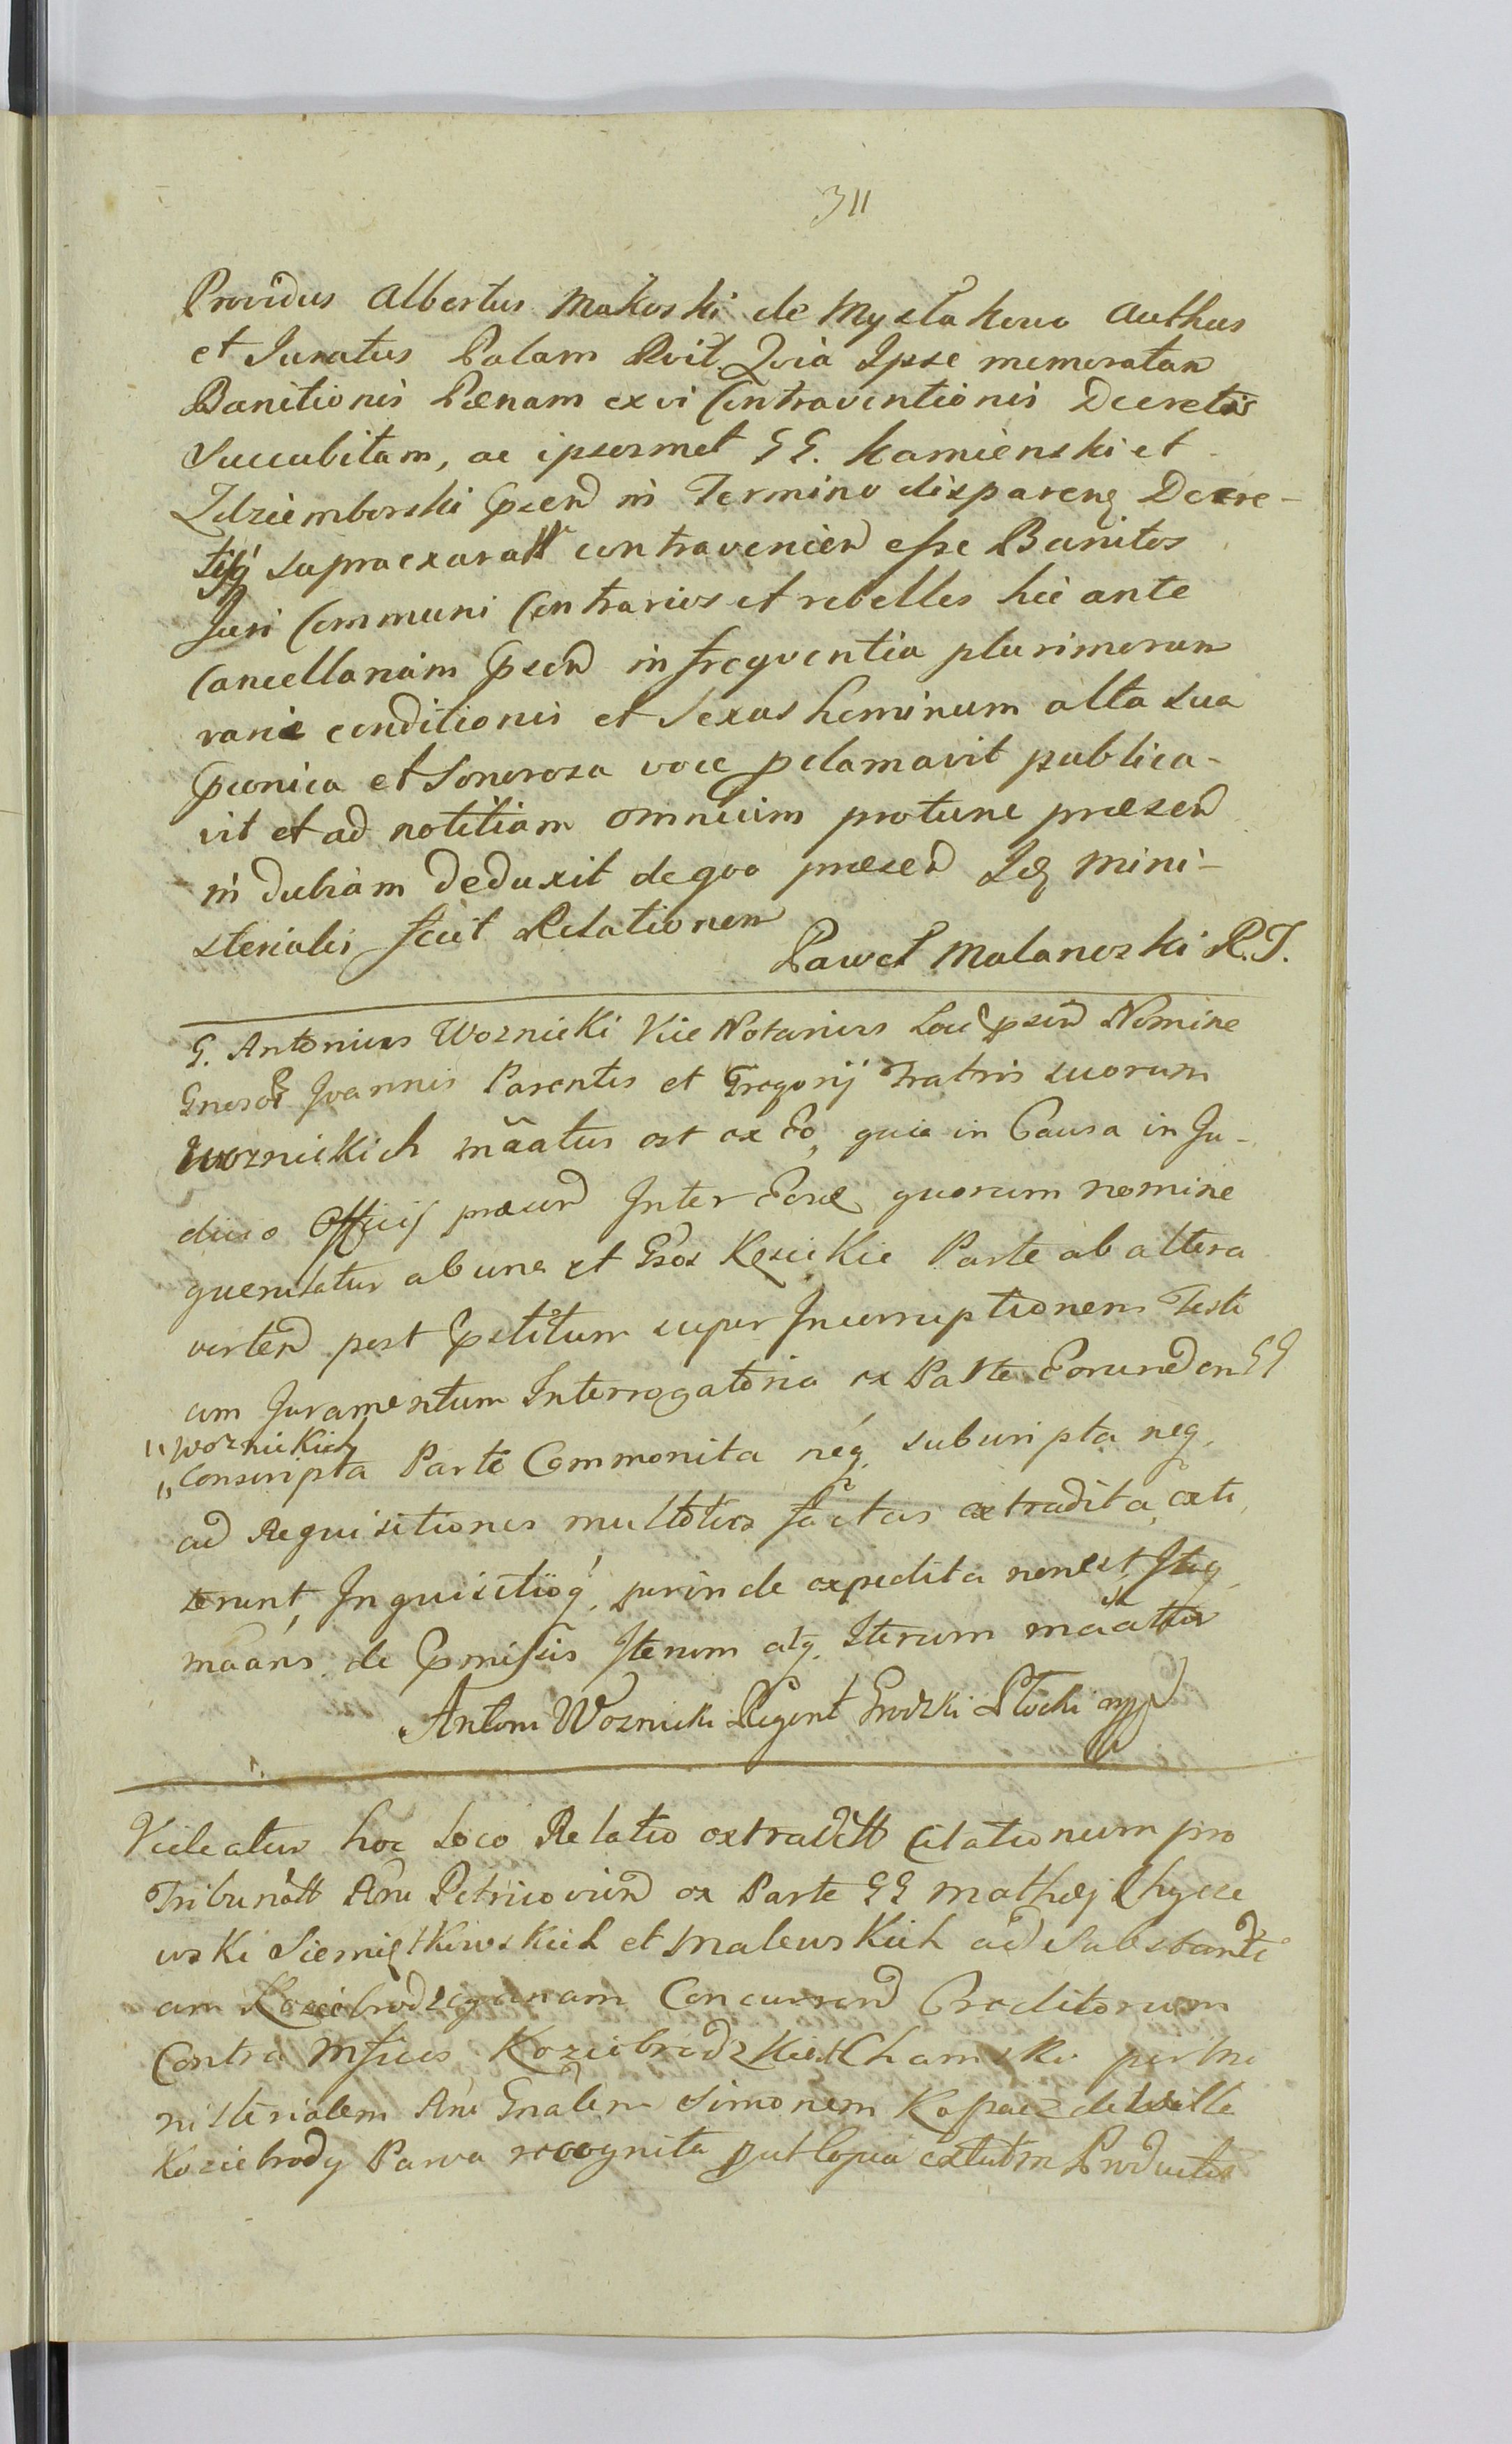 311
Providus Albertus Makoski de Mystkowo Authus
et Juratus Palam Rvit. Qvia Ipse memoratam
Banitionis Pænam ex vi Contraventionis Decretor
Succubitam, ac ipsosmet GG. Kamienski et
Zdziemborski psend in Termino disparenς Decre-
tisq́ supraexaratt contravenien esse Banitos
Juri Communi Contrarios et rebelles hic ante
Cancellariam psend in freqventia plurimorum
varie conditionis et Sexus hominum alta sua
pconica et Sonorosa voce pclamavit publica-
vit et ad notitiam omnium protunc præsend
in dubiam deduxit de qvo præsend Idς mini-
sterialis fecit Relationem
Paweł Malanoski R.J.
G. Antonius Woznicki Vice Notarius Loci psend Nomine
Gneror Joannis Parentis et Gregorij Fratris suorum
Woznickich māatus est ex Eo, quia in Causa in Ju-
dicio Officij præsend Inter Eosd quorum nomine
querulatur ab una et Gsos Kęsickie Parte ab altera
verten post pstitum super Incorruptionem Testi
um Juramentum Interrogatoria ex Parte Eorundem GG
"Woznickich
"Conscripta Parte Commonita neq. subscripta neq.
ad Requisitiones multoties factas extradita, exti,
terunt, Inquisitioq́, perinde expedita non est, Itaq
māans, de pmissis Iterum atq. Iterum māattur
Antoni Woznicki Regent Grodzki Płocki mp
Videatur hoc Loco Relatio extraditt Citationum pro
Tribunatt Rni Petricovien ex Parte GG Mathej Chycze
wski Siemiętkowskich et Malewskich ad Substanti
am Koziebrodzcyanam Concurren Creditorum
Contra Mficos Koziebrodzkie et Chamski per Mi
nisterialem Rni Gnalem Simonem Kopacz de Villa
Koziebrody Parva recognita put Copia extutm Productis